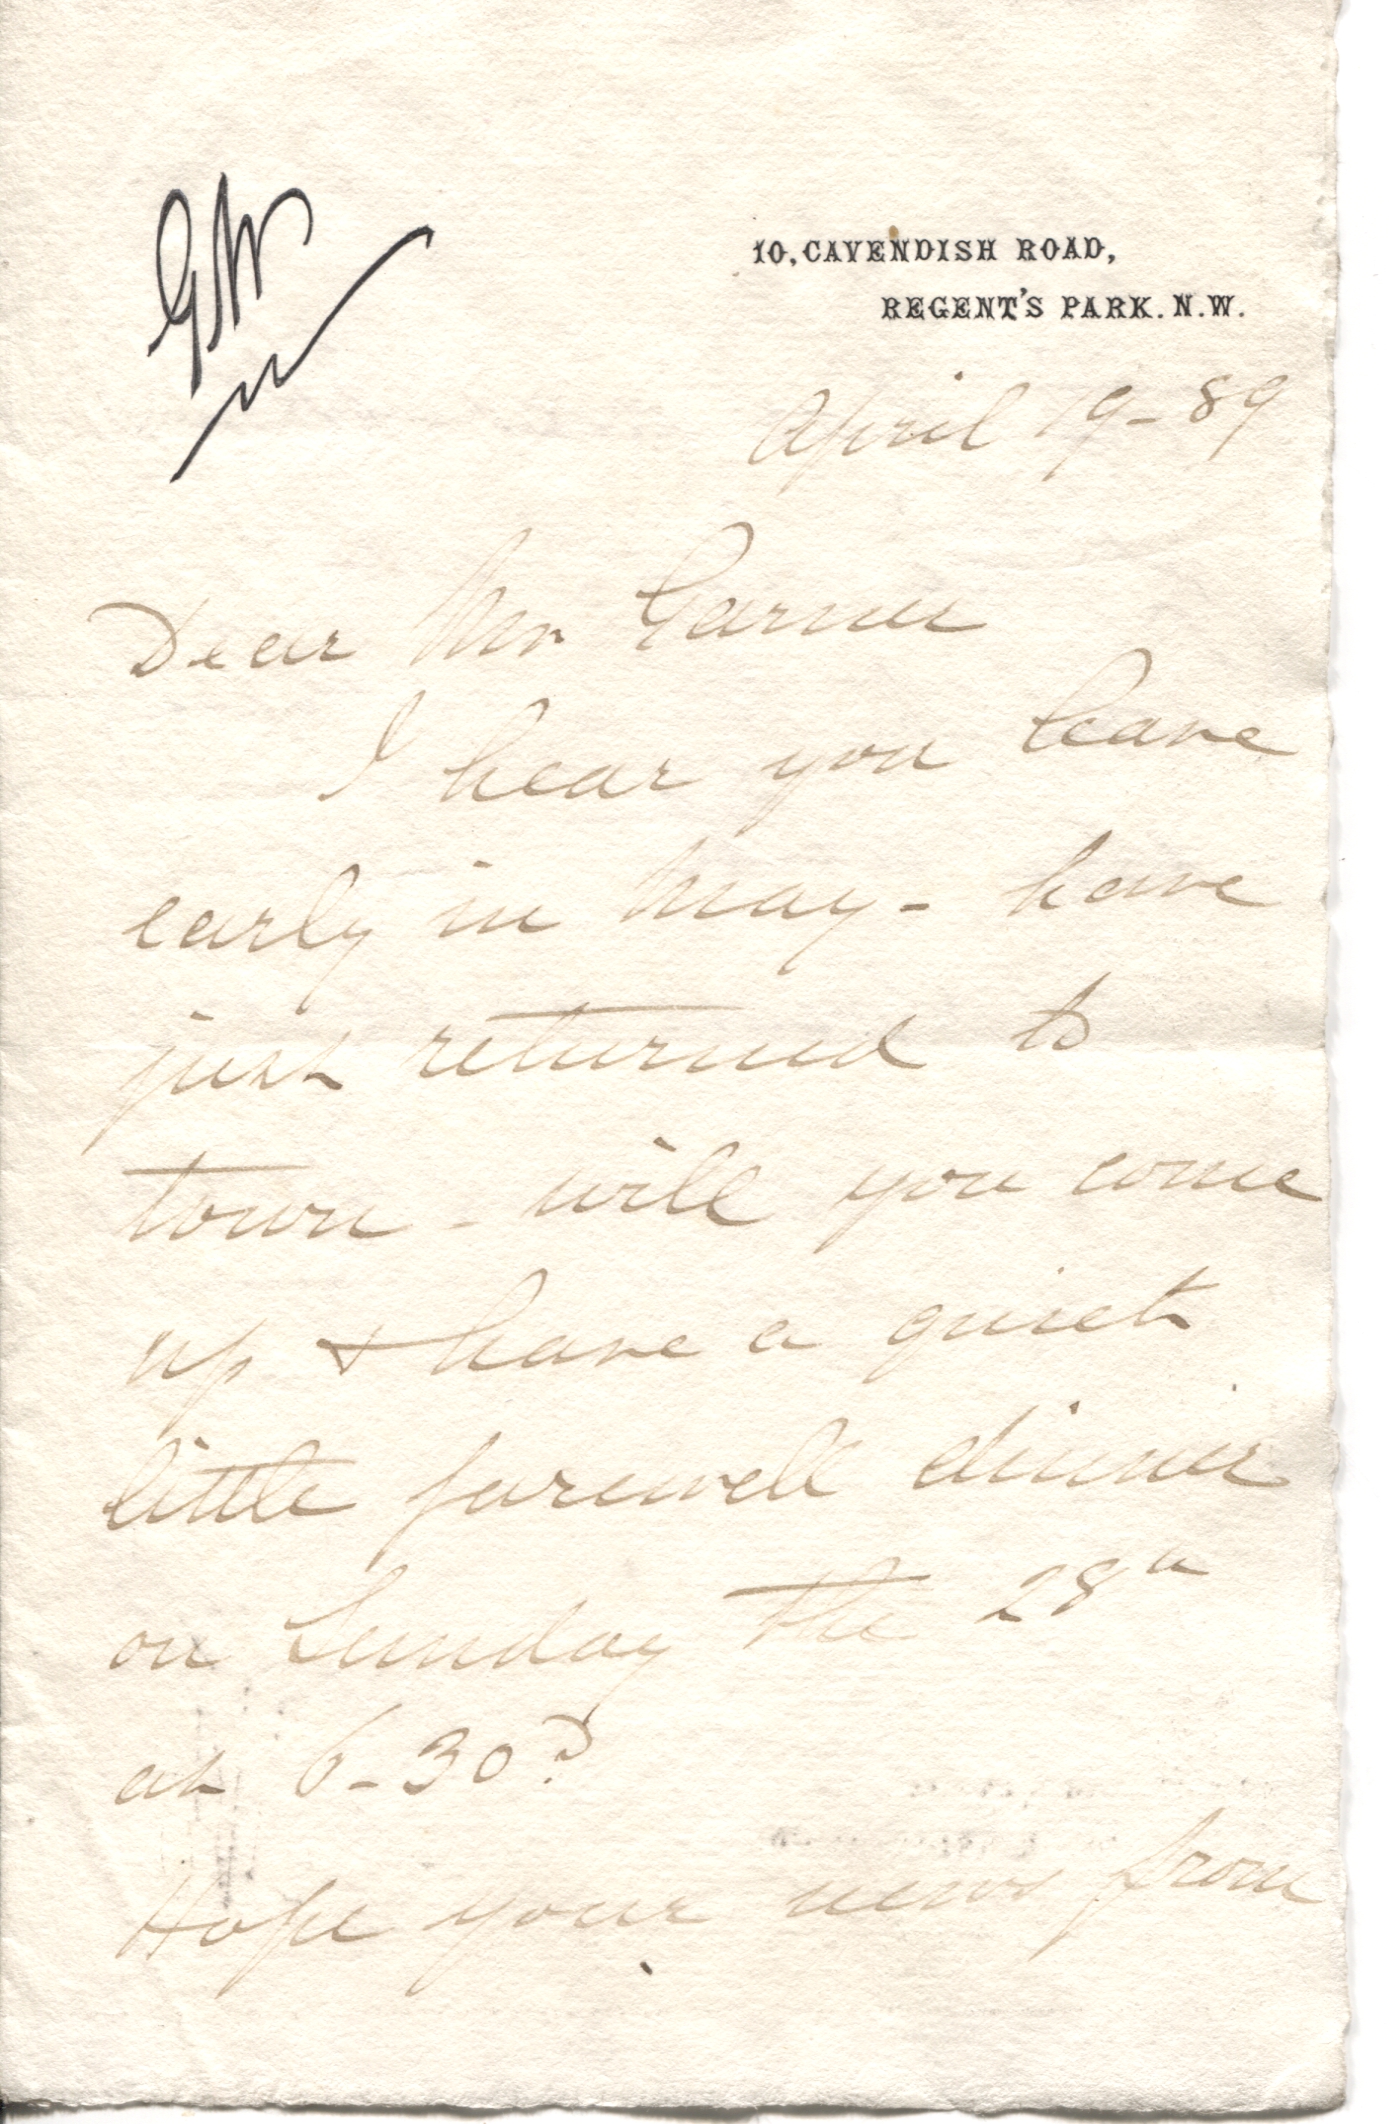 GW
10, CAVENDISH ROAD,
REGENT'S PARK. N.W.
April 19 - 89
Dear Mr Garner
I hear you leave
early in May - have
just returned to
town - will you come
up & have a quiet
little farewell dinner
on Sunday the 28th
at 6-30?
Hope your news from